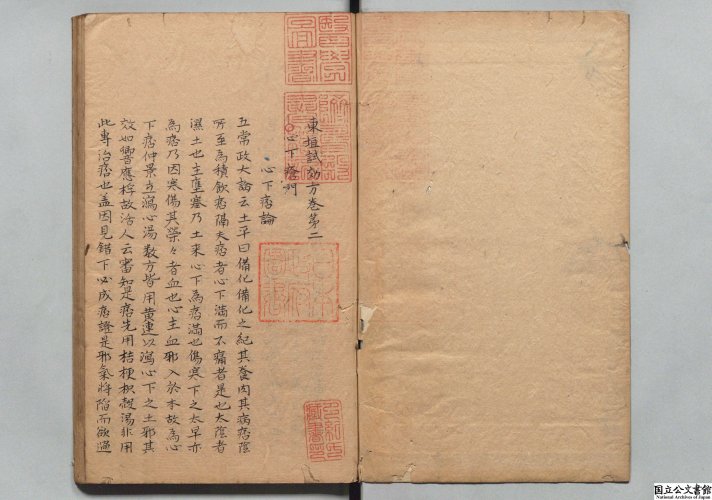 東垣試効方卷第二
○心下痞門
心下痞論
五常政大論云土平曰備化備化之紀其養肉其病痞隂
所至爲積飲痞隔夫痞者心下滿而不痛者是也太隂者
濕土也主壅塞乃土来心下爲痞滿也傷寒下之太早亦
爲痞乃因寒傷其榮々者血也心主血邪入於本故爲心
下痞仲景立瀉心湯数方皆用黄連以瀉心下之土邪其
效如響應桴故活人云審知是痞先用桔梗枳殻湯非用
此專治痞也盖因見錯下必成痞證是邪氣将陷而欲過
醫學
圖書
日本
政府
圖書
國立公文書館
National Archives of Japan